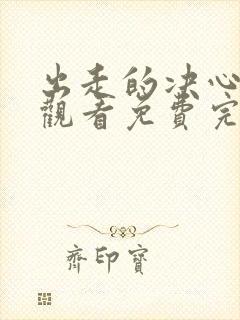 出走的决心
觀看免費完
齊印寶